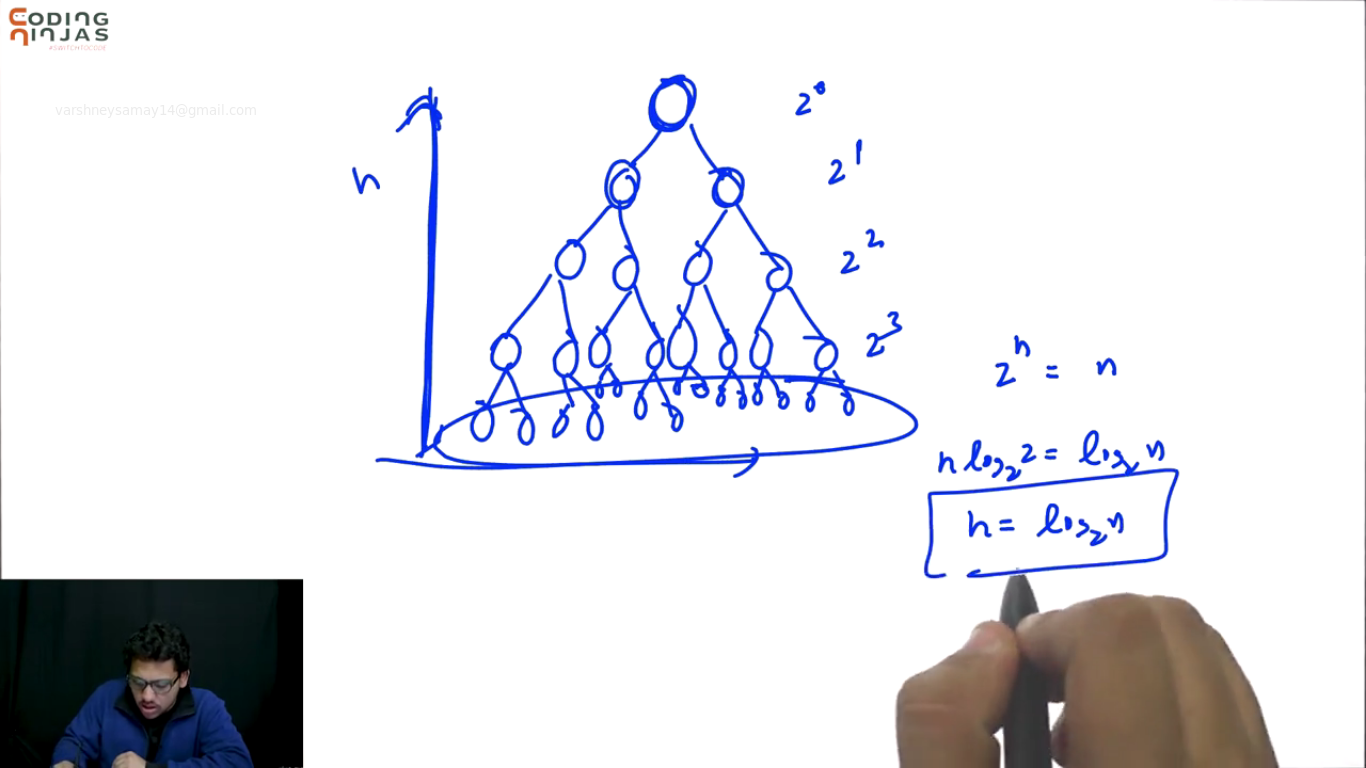 CODING
NINJAS
#SWITCHTOCODE
varshneysamay14@gmail.com
h
2⁰
2¹
2²
2³
2ʰ = n
h log₂2 = log₂n
h = log₂n